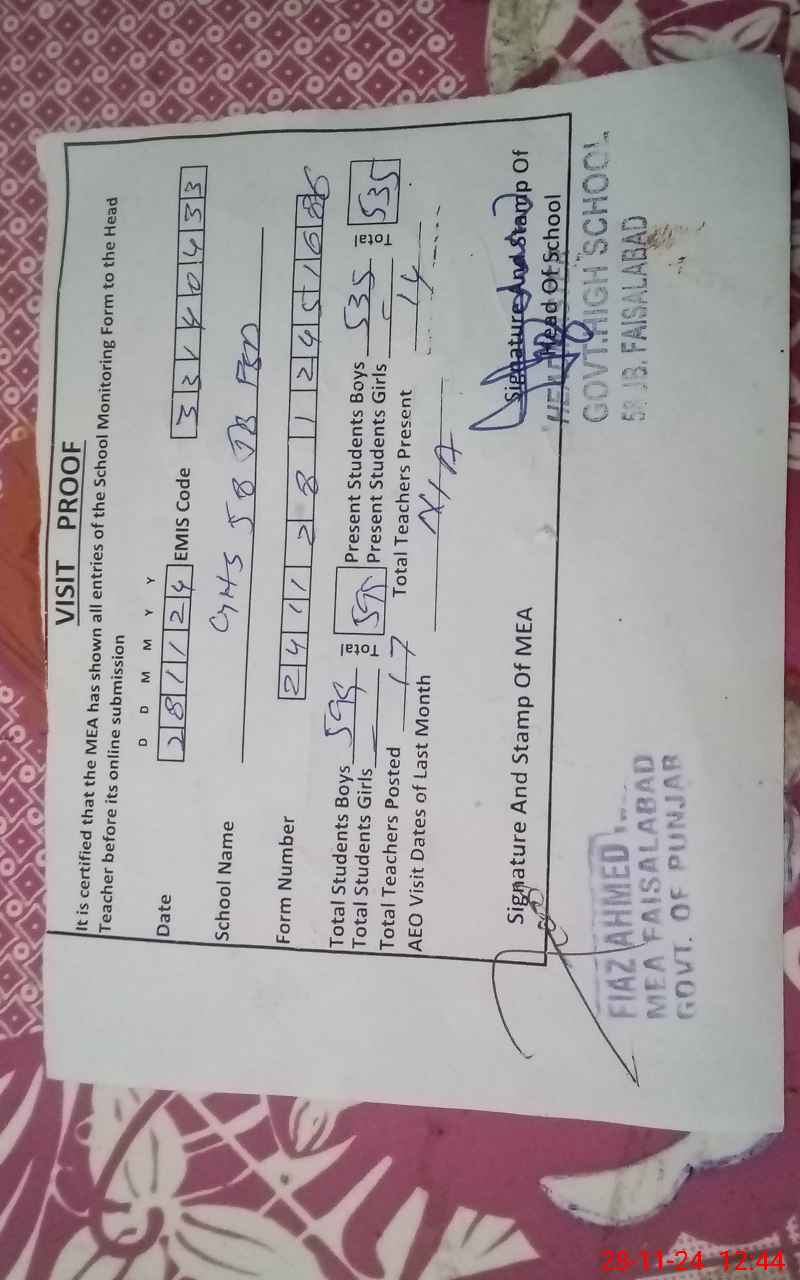 VISIT PROOF
It is certified that the MEA has shown all entries of the School Monitoring Form to the Head
Teacher before its online submission
D D M M Y Y
Date 281124 EMIS Code 33140433
School Name GHS 58 JB FSD
Form Number 24112812451
Total Students Boys 595 Total 595 Present Students Boys 535 Total 535
Total Students Girls — Present Students Girls —
Total Teachers Posted 17 Total Teachers Present 14
AEO Visit Dates of Last Month N/A
Signature And Stamp Of MEA
Signature And Stamp Of
Head Of School
FIAZ AHMED
MEA FAISALABAD
GOVT. OF PUNJAB
GOVT.HIGH SCHOOL
58 JB. FAISALABAD
28-11-24 12:44